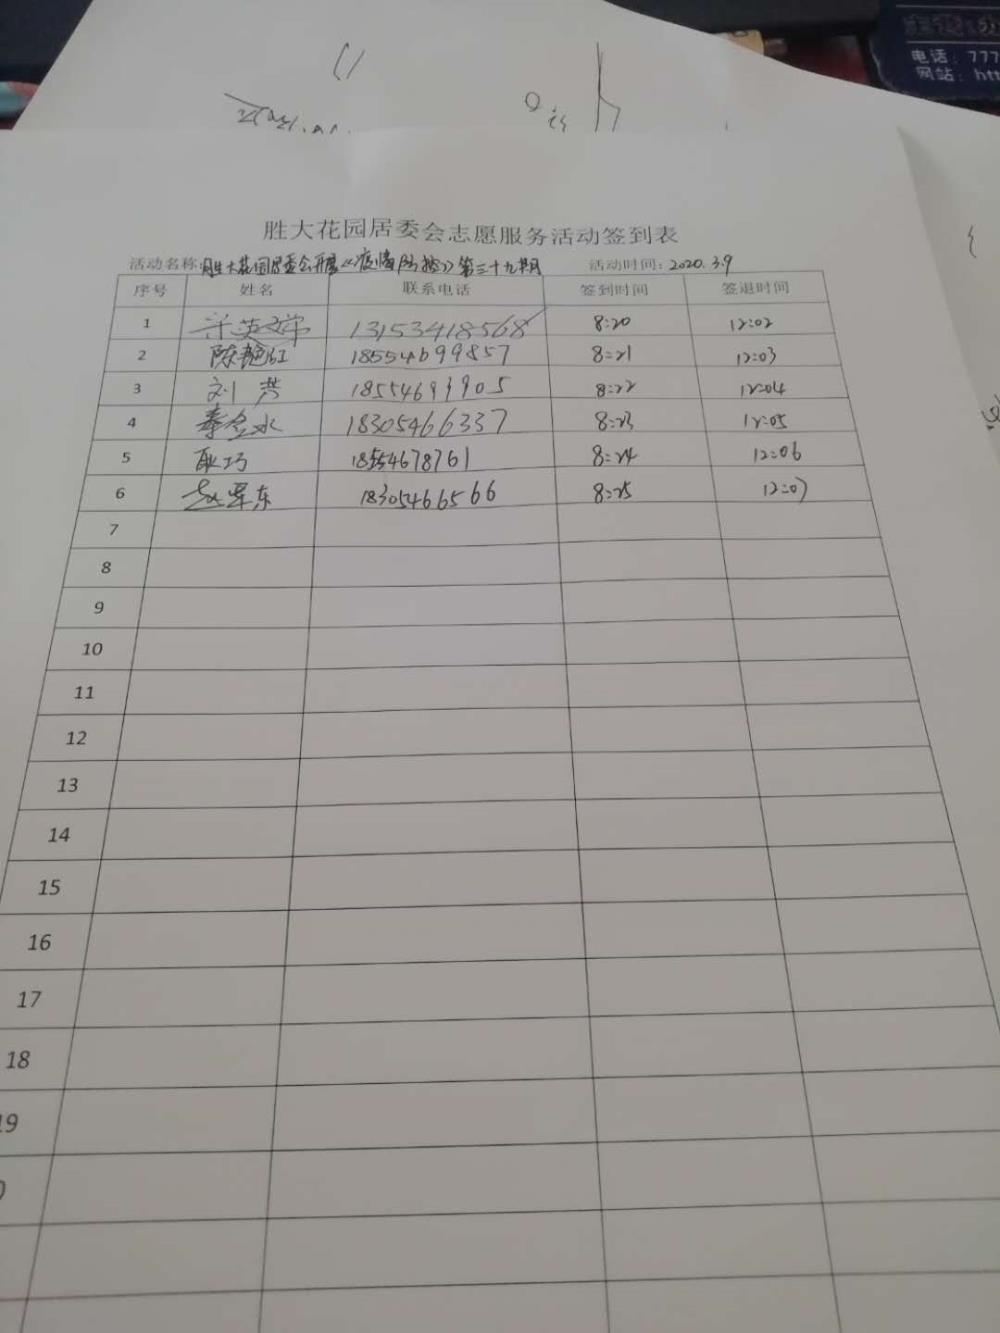 电话：777
网站：htt
胜大花园居委会志愿服务活动签到表
活动名称：胜大花园居委会开展《疫情防控》第三十九期 活动时间：2020.3.9
序号 姓名 联系电话 签到时间 签退时间
1 13153418568 8:20 12:02
2 陈艳红 18554699857 8:21 12:03
3 刘芸 18554691905 8:22 12:04
4 秦金水 18305466337 8:23 12:05
5 耿巧 18554678761 8:24 12:06
6 赵军东 18305466566 8:25 12:07
7
8
9
10
11
12
13
14
15
16
17
18
19